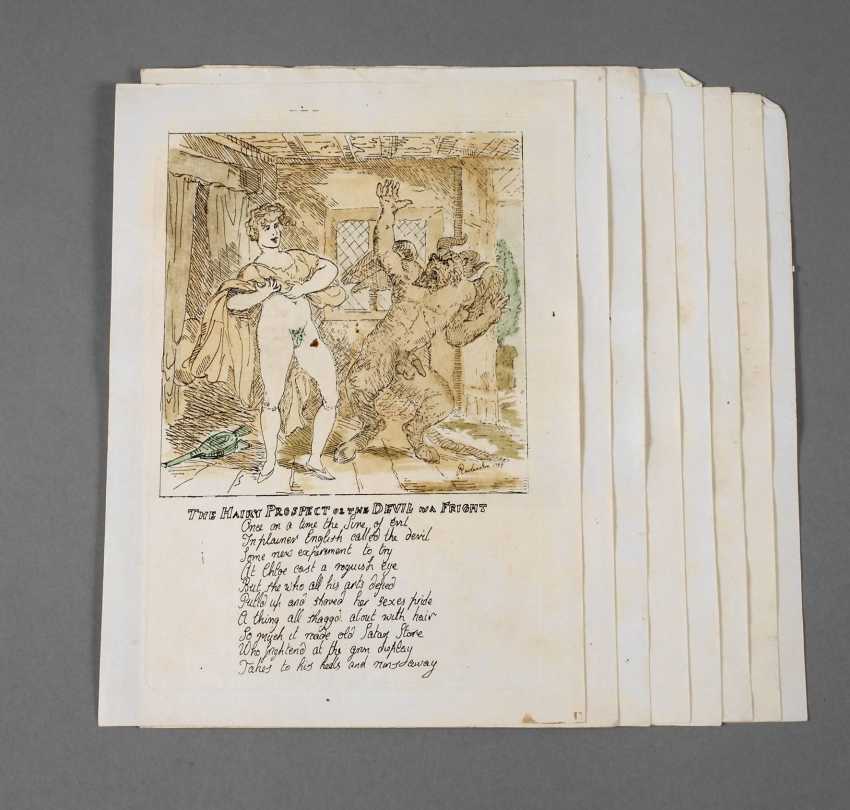 Rowlandson
THE HAIRY PROSPECT OR THE DEVIL IN A FRIGHT
Once on a time the Sire of evil
In plainer English call'd the devil
Some new experiment to try
At Chloe cast a roguish eye
But she who all his arts defied
Pull'd up and shewed her sexes pride
A thing all shagg'd about with hair
So much it made old Satan Stare
Who frightend at the grim display
Takes to his heels and runs away